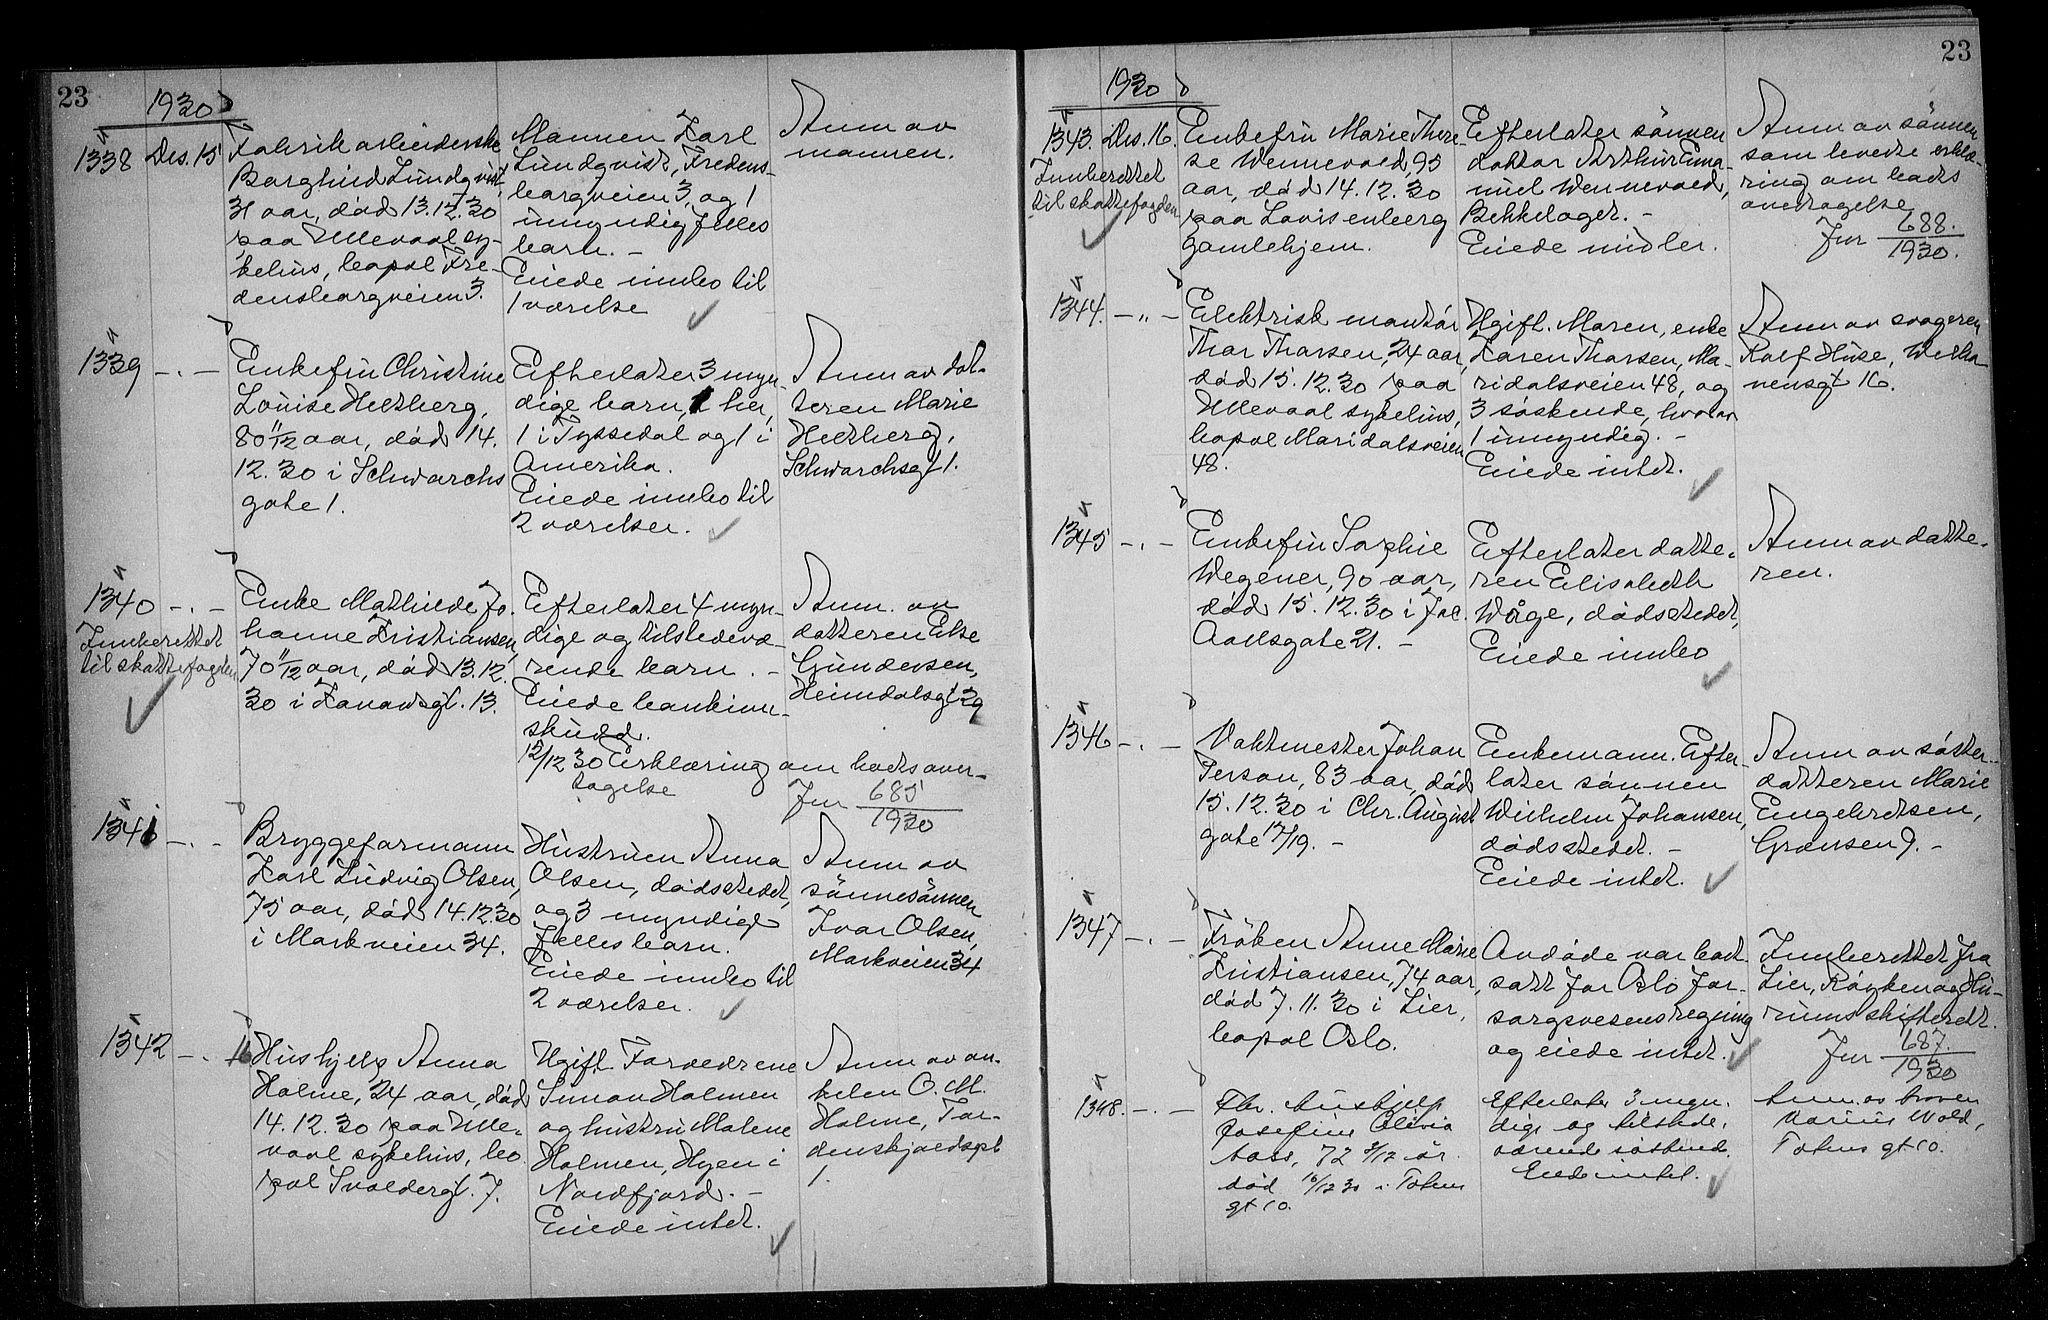 23
1930
1338 Des. 15 Fabrikarbeiderske
Borghild Lundqvist,
31 aar, død 13.12.30
paa Ullevaal sy-
kehus, bopæl Fre-
densborgveien 3.
Mannen Karl
Lundqvist, Fredens-
borgveien 3, og 1
umyndig felles
barn. -
Eiede innbo til
1 værelse
Anm av
mannen.
1339 -.- Enkefru Christine
Louise Heltberg,
80 11/12 aar, død 14.
12.30 i Schwarchs
gate 1.
Efterlater 3 myn-
dige barn, 1 her,
1 i Tyssedal og 1 i
Amerika.
Eiede innbo til
2 værelser.
Anm av dat-
teren Marie
Heltberg,
Schwarchsgt 1.
1340 -.- Enke Mathilde Jo-
Innberettet
til skattefogden
hanne Kristiansen,
70 11/12 aar, død 13.12.
30 i Kanawsgt. 13.
Efterlater 4 myn-
dige og tilstedevæ-
rende barn. -
Eiede bankinn-
skudd.
12/12 30 Erklæring om boets over-
tagelse
Jnr 685/1930
Anm. av
datteren Else
Gundersen,
Heimdalsgt 29
1341 -.- Bryggeformann
Karl Ludvig Olsen,
75 aar, død 14.12.30
i Markveien 34.
Hustruen Anna
Olsen, dødsstedet,
og 3 myndige
felles barn.
Eiede innbo til
2 værelser.
Anm av
sønnesønnen
Ivar Olsen,
Markveien 34
1342 -. 16 Hushjelp Anna
Holme, 24 aar, død
14.12.30 paa Ulle-
vaal sykehus, bo-
pæl Svoldergt. 7.
Ugift. Forældrene
Simon Holmen
og hustru Malene
Holmen, Hyen i
Nordfjord. -
Eiede intet.
Anm av on-
kelen O. M.
Holme, Tor-
denskjoldspl
1.
23
1930
1343. Des. 16. Enkefru Marie There-
Innberettet
til skattefogden
se Wennevold, 95
aar, død 14.12.30
paa Lovisenberg
gamlehjem.
Efterlater sønnen
doktor Arthur Ema-
nuel Wennevold,
Bekkelaget. -
Eiede midler.
Anm av sønnen
som leverte erklæ-
ring om boets
overtagelse
Jnr 688./1930.
1344. -„- Elektrisk montør
Thor Thorsen, 24 aar,
død 15.12.30 paa
Ullevaal sykehus,
bopæl Maridalsveien
48.
Ugift. Moren, enke
Karen Thorsen, Ma-
ridalsveien 48, og
3 søskende, hvorav
1 umyndig. -
Eiede intet.
Anm av svogeren
Rolf Huse, Welha-
vensgt 16.
1345 -.- Enkefru Sophie
Wegener, 90 aar,
død 15.12.30 i Jac.
Aallsgate 21. -
Efterlater datte-
ren Elisabeth
Wåge, dødsstedet,
Eiede innbo
Anm av datte-
ren.
1346 -.- Vaktmester Johan
Person, 83 aar, død
15.12.30 i Chr. August
gate 17/19. -
Enkemann. Efter-
later sønnen
Wilhelm Johansen,
dødsstedet. -
Eiede intet.
Anm av søster-
datteren Marie
Engebretsen,
Grensen 9. -
1347 -.- Frøken Anne Marie
Kristiansen, 74 aar,
død 7.11.30 i Lier,
bopæl Oslo.
Avdøde var bort-
satt for Oslo For-
sorgsvesens regning
og eiede intet.
Innberettet fra
Lier, Røyken og Hu-
rums skifterett.
Jnr 687./1930
1348. -.- Fhv. hushjelp
Josefine Olivia
Aass, 72 2/12 år.
død 16/12 30 i Totens
gt 10.
Efterlater 3 myn-
dige og tilstede-
værende søskende.
Eiede intet.
Anm. av broren
Marius Wold,
Totens gt 10.